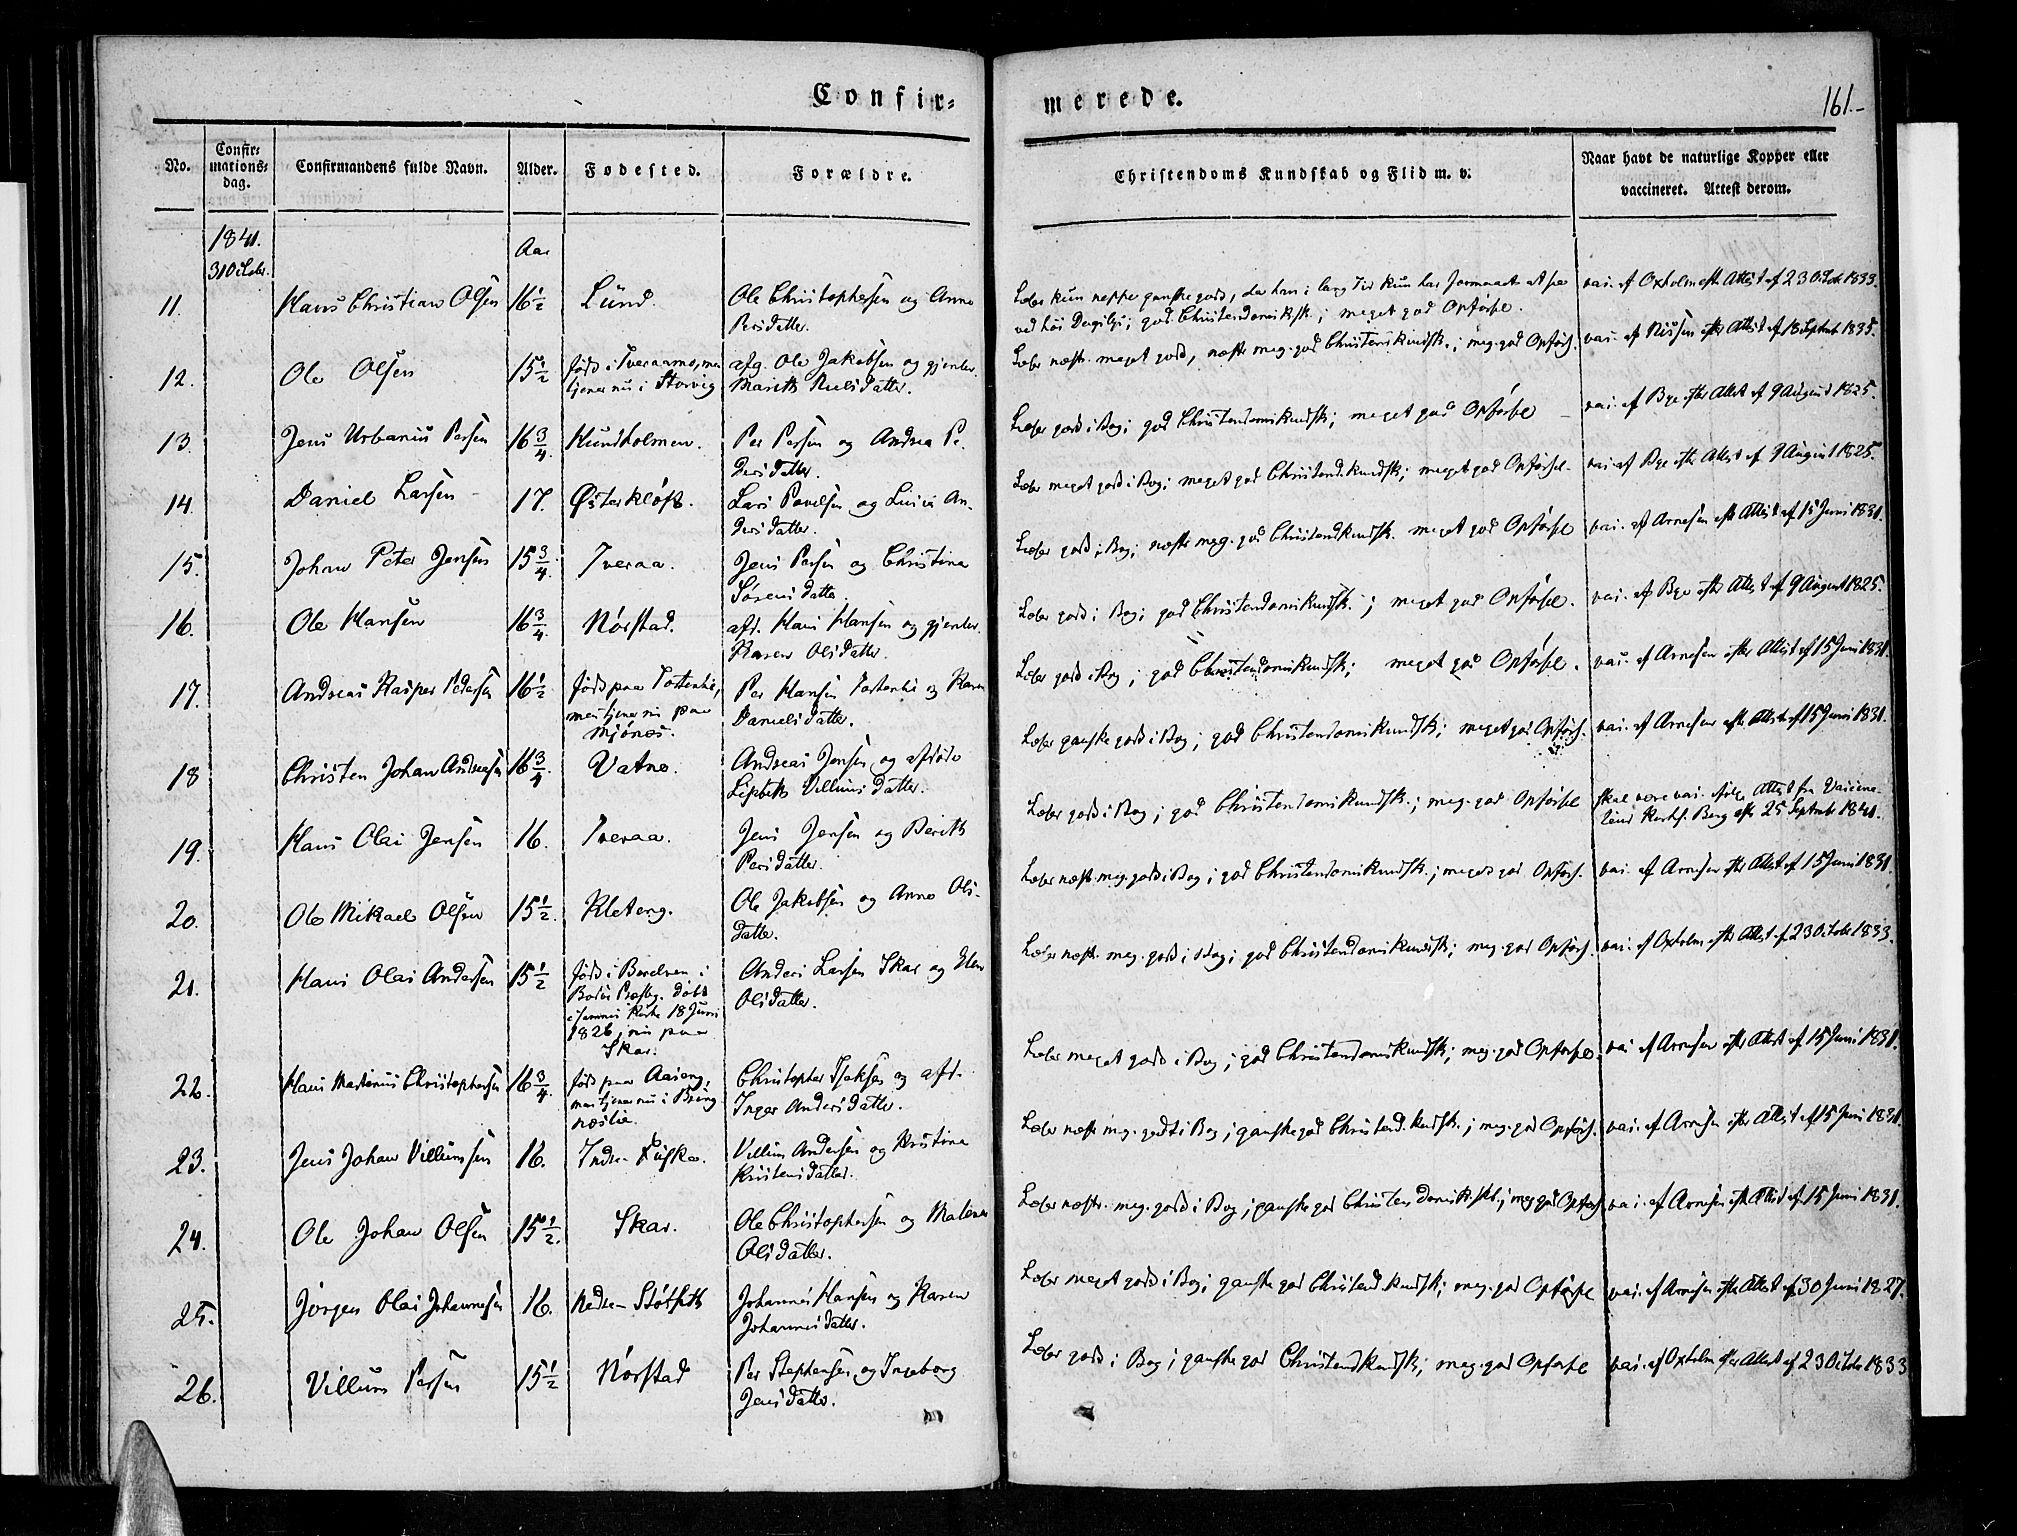 Confir-
merede.
161.-
No.
Confir-
mations-
dag.
Confirmandens fulde Navn.
Alder.
Fødested.
Forældre.
Christendoms Kundskab og Flid m. v.
Naar havt de naturlige Kopper eller
vaccineret. Attest derom.
1841.
3 October.
Aar
11.
Hans Christian Olsen
16 1/2
Lund.
Ole Christophersen og Anne
Persdatter.
Læser kun neppe ganske godt, da han i lang Tid kun har formaaet at see
ved høi Dagslys; god Christendomsksk.; meget god Opførsel.
vac. af Oxholm eft. Attest af 23 Octob. 1833.
12.
Ole Olsen
15 1/2
født i Tveraamo, men
tjener nu i Storvig
afg. Ole Jakobsen og gjenlev.
Marith Pulsdatter.
Læser næst. meget godt, næsten meg. god Christendsk.; meg. god Opførs.
vac. af Nissen efter Attest af 18 Septemb. 1835.
13.
Jens Urbanus Persen
16 3/4
Hundholmen.
Per Persen og Andrea Pe-
dersdatter.
Læser godt i Bog; god Christendomskundsk.; meget god Opførsel
vac. af Bye efter Attest af 9 August 1825.
14.
Daniel Larsen
17.
Østerkløft.
Lars Povelsen og Lucia An-
dersdatter.
Læser meget godt i Bog; meget god Christend.kundsk.; meget god Opførsel.
vac. af Bye efter Attest af 9 August 1825.
15.
Johan Peter Jensen
15 3/4.
Tveraa.
Jens Persen og Christina
Sørensdatter.
Læser godt i Bog; næsten meg. god Christendkundsk. meget god Opførsel
vac. af Arnesen eft. Attest af 15 Juni 1831.
16.
Ole Hansen
16 3/4.
Nørstad.
afd. Hans Hansen og gjenlev.
Karen Olsdatter.
Læser godt i Bog; god Christendomskundsk.; meget god Opførsel.
vac. af Bye efter Attest af 9 August 1825.
17.
Andreas Kasper Pedersen
16 1/2
født paa Tostenli,
men tjener nu paa
Mjønes.
Per Hansen Tostenli og Karen
Danielsdatter.
Læser godt i Bog; god Christendomskundsk.; meget god Opførsel.
vac. af Arnesen efter Attest af 15 Juni 1831.
18
Christen Johan Andreasen
16 3/4.
Vatne.
Andreas Jensen og afdøde
Lisbeth Villumsdatter.
Læser ganske godt i Bog; god Christendomskundsk.; meget god Opførs.
vac. af Arnesen eft. Attest af 15 Juni 1831.
19.
Hans Olai Jensen
16.
Tveraa.
Jens Jensen og Berith
Persdatter.
Læser godt i Bog; god Christendomskundsk.; meg. god Opførsel
skal være vac. ifølge Attest fra Vaccine-
teur Berg eft. 25 Septembr 1841.
20.
Ole Mikael Olsen
15 1/2.
Kleteng.
Ole Jakobsen og Anne Ols-
datter.
Læser næst. meg. godt i Bog; god Christendomskundsk.; meget god Opførs.
vac. af Arnesen efter Attest af 15 Juni 1831.
21.
Hans Olai Andersen
15 1/2
født i
Bodøe Præstg. døbt
i sammes Kirke 18 Juni
1826, nu paa
Skar.
Anders Larsen Skar og Elen
Olsdatter.
Læser næst. meg. godt i Bog; god Christendomskundsk.; meg. god Opførs.
vac. af Oxholm efter Attest af 23 Octobr 1833.
22.
Hans Martinus Christophersen
16 3/4.
født paa Aaseng,
men tjener nu i Bring
næslie.
Christopher Isaksen og afd.
Inger Andersdatter.
Læser meget godt i Bog; god Christendomskundsk.; meg. god Opførsel.
vac. af Arnesen efter Attest af 15 Juni 1831.
23.
Jens Johan Villumsen
16.
Indre Fuske.
Villum Andersen og Kristina
Kristensdatter.
Læser næsten meg. godt i Bog; ganske god Christend.kundsk.; meg. god Opførs.
vac. af Arnesen efter Attest af 15 Juni 1831.
24.
Ole Johan Olsen
15 1/2.
Skar.
Ole Christophersen og Malena
Olsdatter.
Læser næst. meg. godt i Bog; ganske god Christendomsksk.; meg. god Opførs.
vac. af Arnesen eft. Attest af 15 Juni 1831.
25.
Jørgen Olai Johannesen
16.
Nedre Støtseth
Johannes Hansen og Karen
Johannesdatter.
Læser meget godt i Bog; ganske god Christend.kundsk.; meg. god Opførsel
vac. af Arnesen efter Attest af 30 Juni 1827.
26.
Villum Persen
15 1/2
Nørstad
Per Stephensen og Ingeborg
Jensdatter.
Læser godt i Bog; ganske god Christendkundsk.; meg. god Opførsel
vac. af Oxholm efter Attest af 23 Octobr 1833